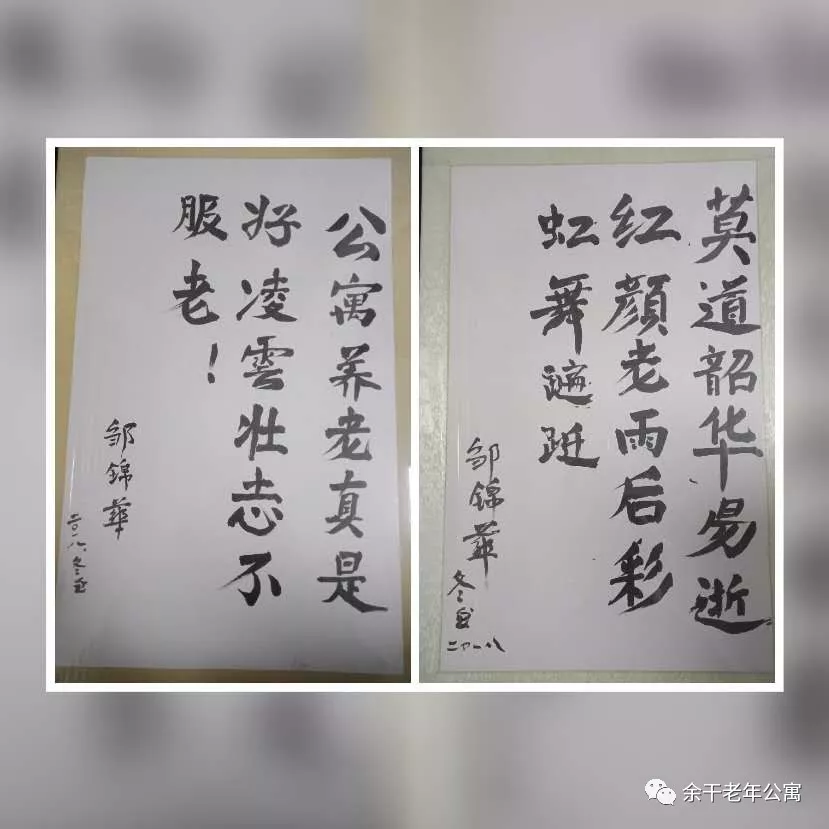 公寓养老真是
好凌雲壮志不
服老！
邹锦华
二〇一八.冬至
莫道韶华易逝
红顔老雨后彩
虹舞遍跹
邹锦华
冬至
二〇一八
余干老年公寓